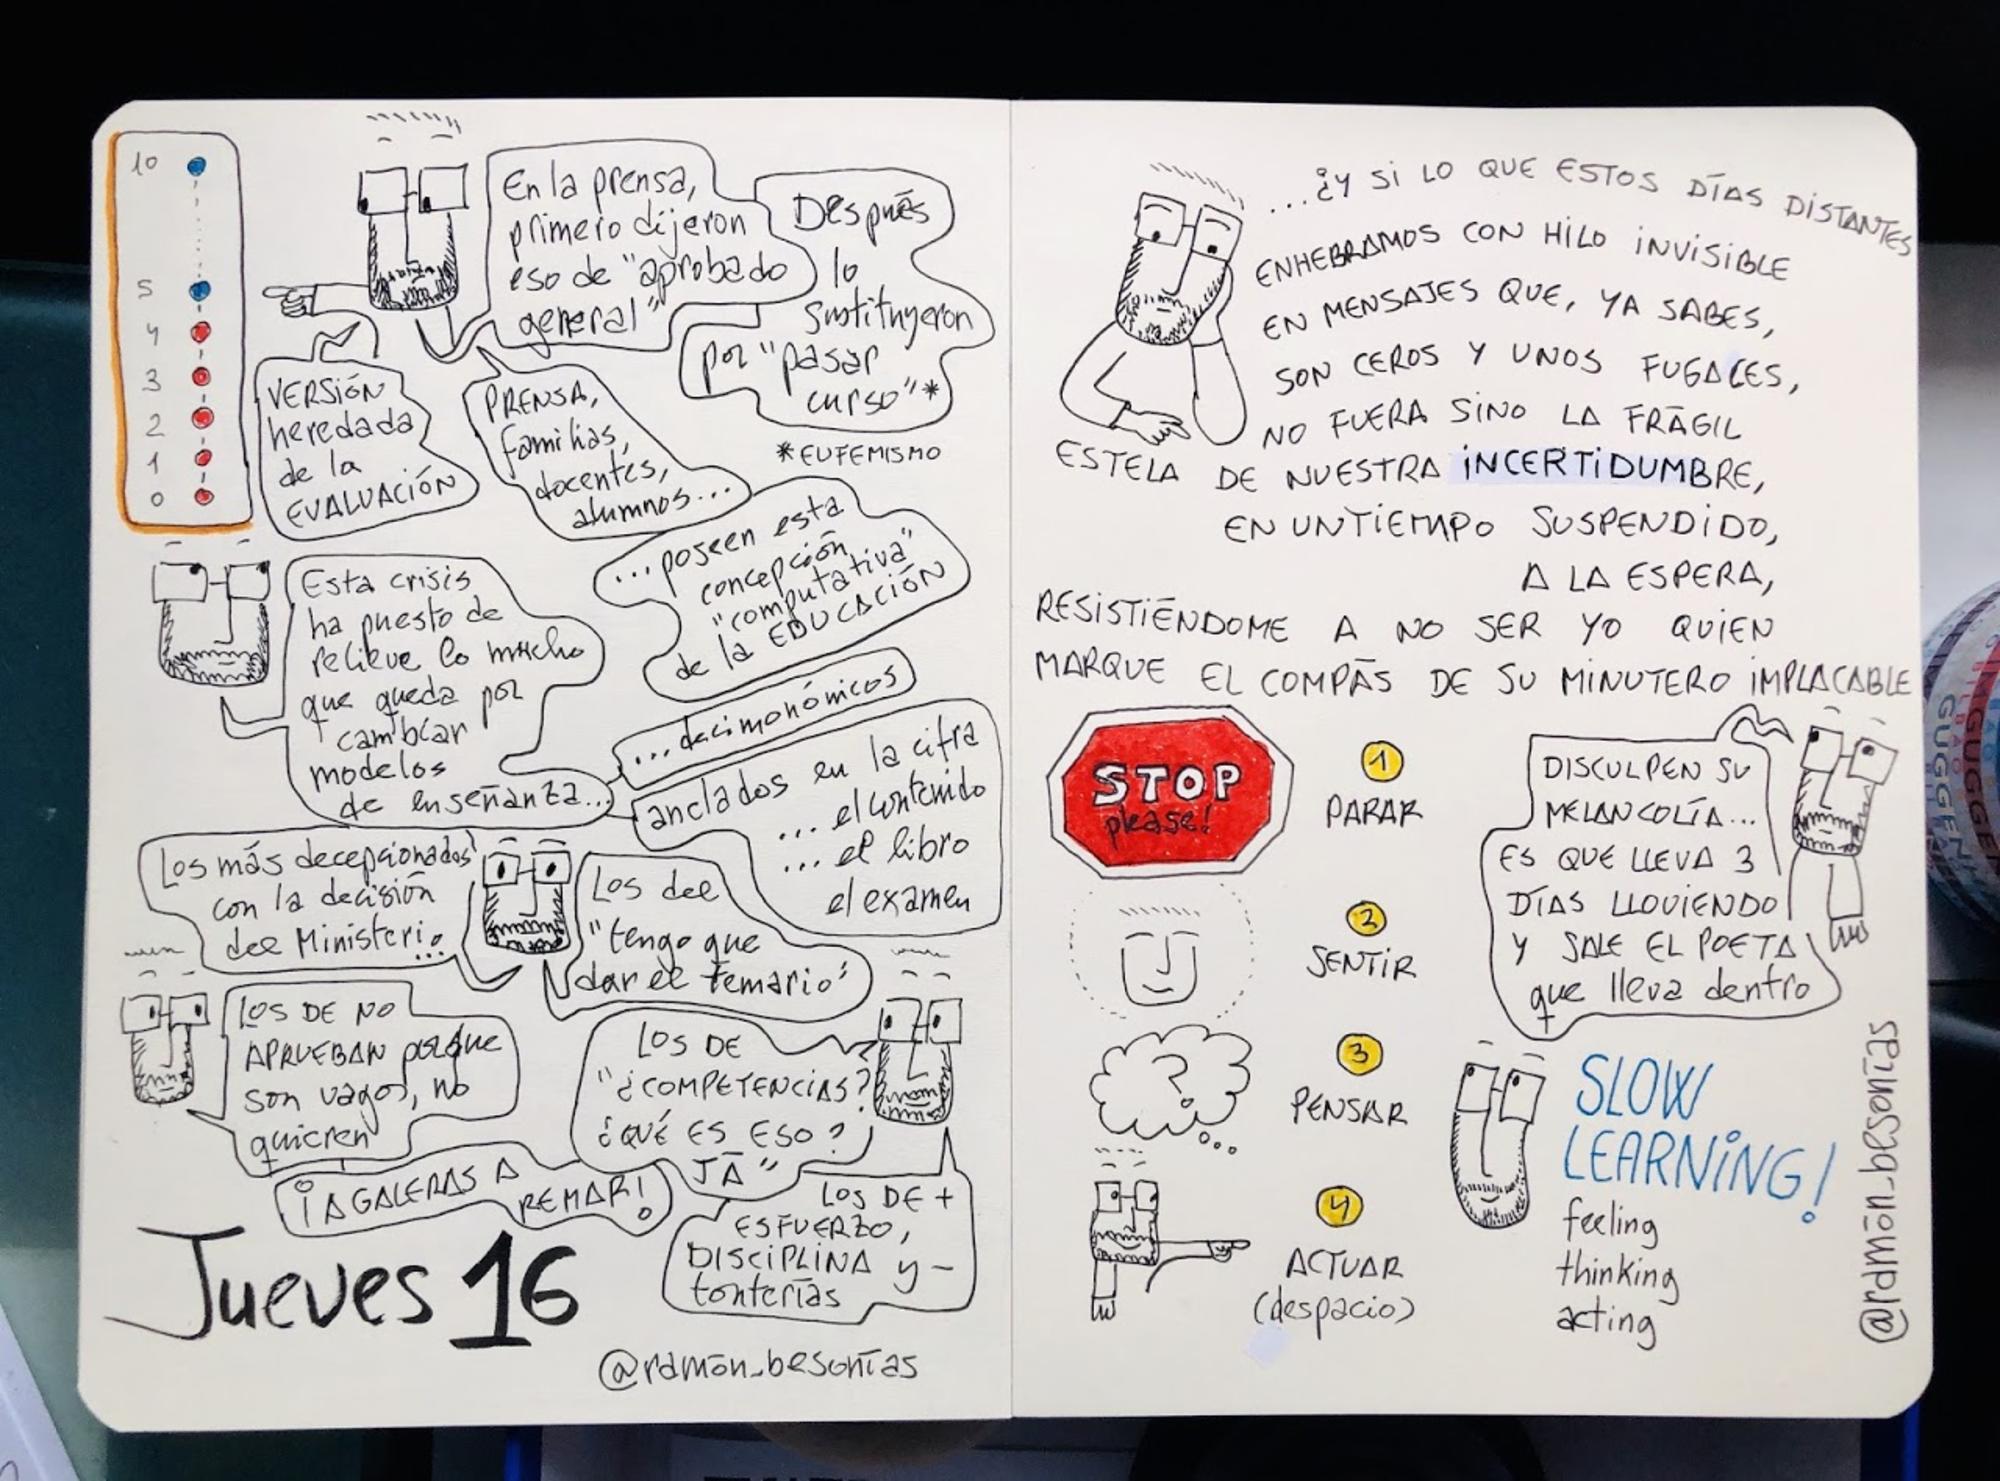 10
5
4
3
2
1
0
VERSIÓN
heredada
de la
EVALUACIÓN
En la prensa,
primero dijeron
eso de "aprobado
general"
Después
lo
sustituyeron
por "pasar
curso"*
*EUFEMISMO
PRENSA,
familias,
docentes,
alumnos...
...poseen esta
concepción
"computativa"
de la EDUCACIÓN
Esta crisis
ha puesto de
relieve lo mucho
que queda por
cambiar
modelos
de enseñanza...
...decimonónicos
anclados en la cifra
... el contenido
... el libro
el examen
Los más decepcionados
con la decisión
del Ministerio...
Los del
"tengo que
dar el temario"
LOS DE NO
APRUEBAN porque
son vagos, no
quieren
¡A GALERAS A
REMAR!
LOS DE
"¿COMPETENCIAS?
¿QUÉ ES ESO?
JÁ"
LOS DE +
ESFUERZO,
DISCIPLINA y -
tonterías
Jueves 16
@ramón_besonías
...¿Y SI LO QUE ESTOS DÍAS DISTANTES
ENHEBRAMOS CON HILO INVISIBLE
EN MENSAJES QUE, YA SABES,
SON CEROS Y UNOS FUGACES,
NO FUERA SINO LA FRÁGIL
ESTELA DE NUESTRA INCERTIDUMBRE,
EN UN TIEMPO SUSPENDIDO,
A LA ESPERA,
RESISTIÉNDOME A NO SER YO QUIEN
MARQUE EL COMPÁS DE SU MINUTERO IMPLACABLE
STOP
please!
1
PARAR
2
SENTIR
?
3
PENSAR
4
ACTUAR
(despacio)
DISCULPEN SU
MELANCOLÍA...
ES QUE LLEVA 3
DÍAS LLOVIENDO
Y SALE EL POETA
que lleva dentro
SLOW
LEARNING!
feeling
thinking
acting
@ramón_besonías